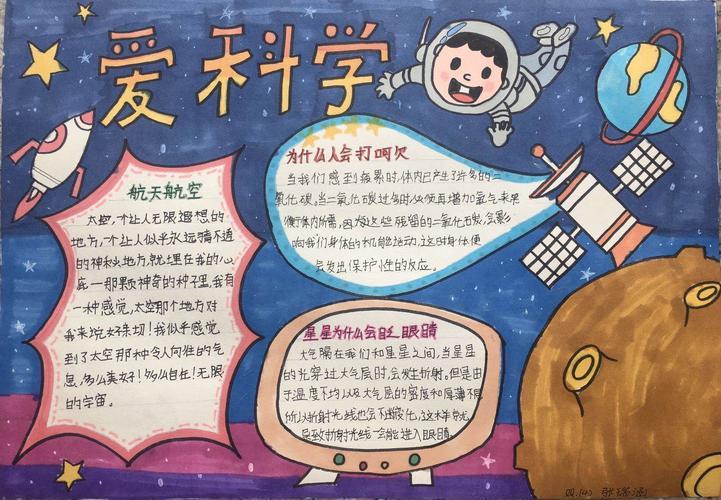 爱科学
航天航空
太空,个让人无限遐想的
地方,个让人似乎永远猜不透
的神秘地方,就埋在我的心
底一那颗神奇的种子里,我有
一种感觉,太空那个地方对
我来说好亲切!我似乎感觉
到了太空那种令人向往的气
息,多么美好!多么自在!无限
的宇宙。
为什么人会打呵欠
当我们感到疲累时,体内已产生了许多的二
氧化碳。当二氧化碳过多时,必须再增加氧气来平
衡体内所需,因为这些残留的二氧化碳,会影
响我们身体的机能活动,这时身体便
会发出保护性的反应。
星星为什么会眨眼睛
大气隔在我们和星星之间,当星星
的光穿过大气层时,会发生折射。但是由
于温度不均以及大气层的密度和厚薄不同
所以折射光线也会不断变化,这样就
导致折射光线一会能进入眼睛。
四.(4)